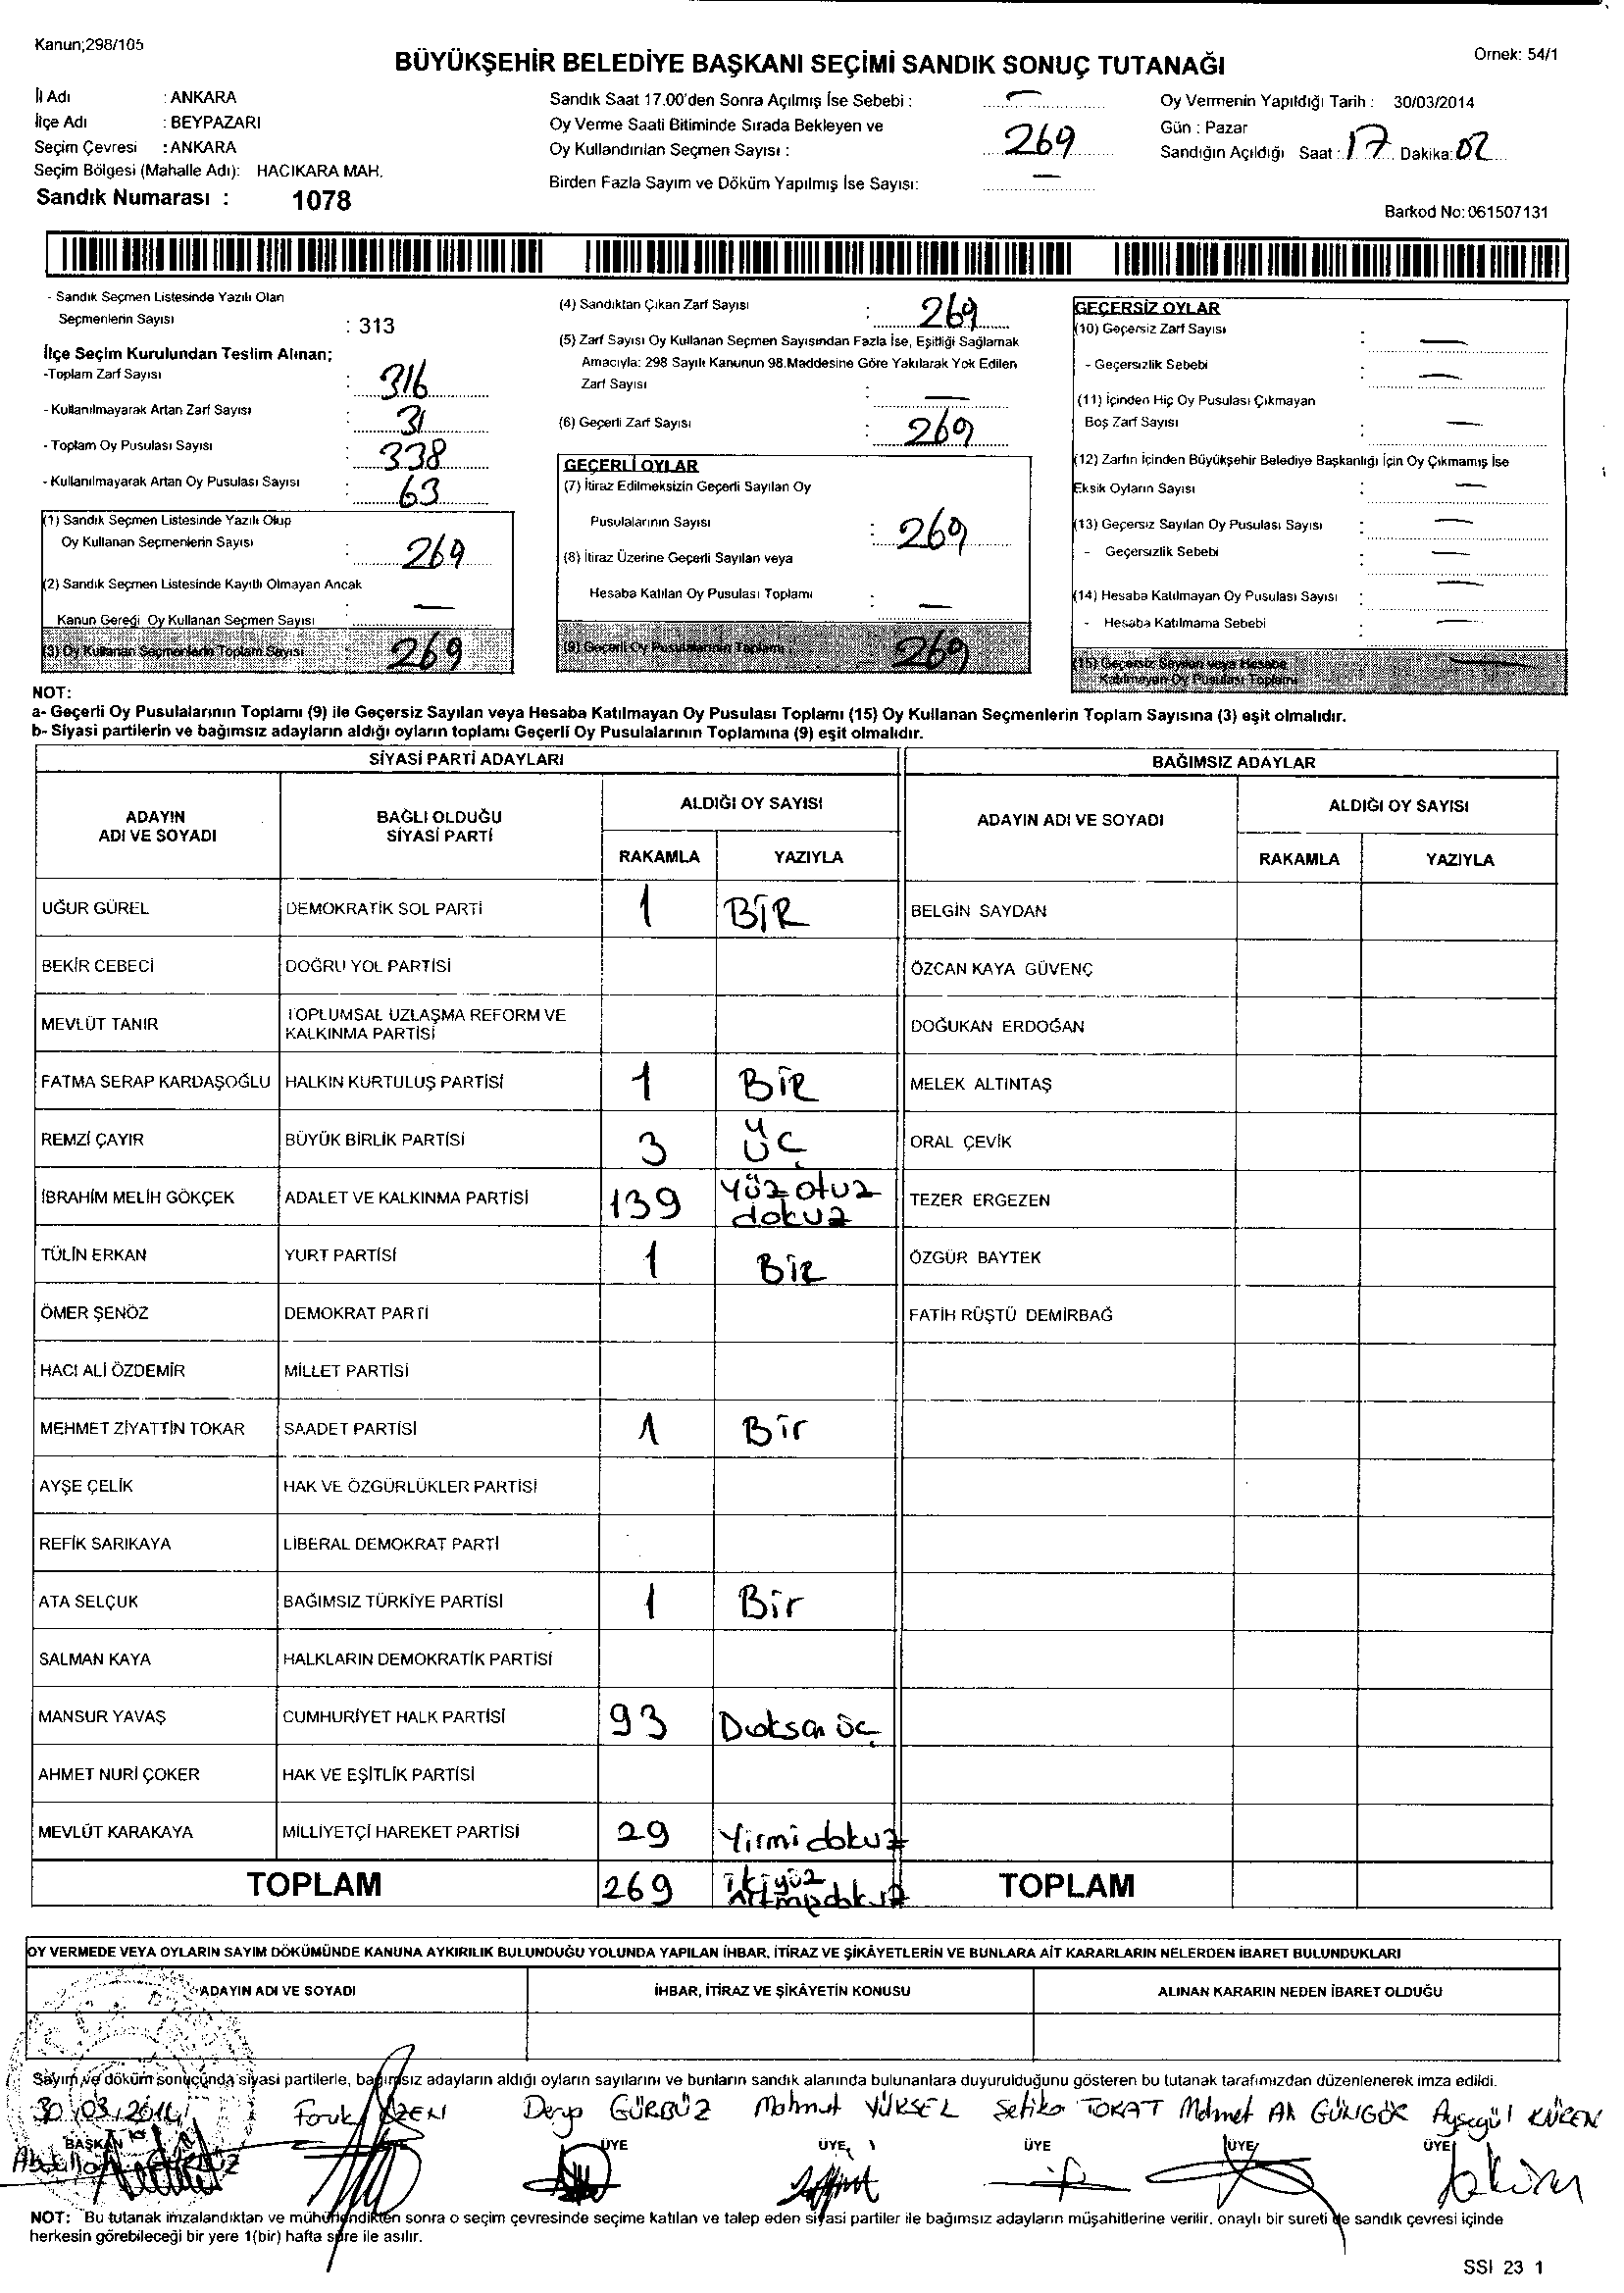 Kanun;298/105
Örnek: 54/1
BÜYÜKŞEHİR BELEDİYE BAŞKANI SEÇİMİ SANDIK SONUÇ TUTANAĞI
İl Adı : ANKARA
İlçe Adı : BEYPAZARI
Seçim Çevresi : ANKARA
Seçim Bölgesi (Mahalle Adı): HACIKARA MAH.
Sandık Numarası : 1078
Sandık Saat 17.00'den Sonra Açılmış İse Sebebi : —
Oy Verme Saati Bitiminde Sırada Bekleyen ve
Oy Kullandırılan Seçmen Sayısı : 269
Birden Fazla Sayım ve Döküm Yapılmış İse Sayısı: —
Oy Vermenin Yapıldığı Tarih : 30/03/2014
Gün : Pazar
Sandığın Açıldığı Saat : 17 Dakika: 02
Barkod No: 061507131
- Sandık Seçmen Listesinde Yazılı Olan
Seçmenlerin Sayısı : 313
İlçe Seçim Kurulundan Teslim Alınan;
-Toplam Zarf Sayısı : 316
- Kullanılmayarak Artan Zarf Sayısı : 31
- Toplam Oy Pusulası Sayısı : 338
- Kullanılmayarak Artan Oy Pusulası Sayısı : 63
(1) Sandık Seçmen Listesinde Yazılı Olup
Oy Kullanan Seçmenlerin Sayısı : 269
(2) Sandık Seçmen Listesinde Kayıtlı Olmayan Ancak
Kanun Gereği Oy Kullanan Seçmen Sayısı : —
(3) Oy Kullanan Seçmenlerin Toplam Sayısı 269
(4) Sandıktan Çıkan Zarf Sayısı : 269
(5) Zarf Sayısı Oy Kullanan Seçmen Sayısından Fazla İse, Eşitliği Sağlamak
Amacıyla: 298 Sayılı Kanunun 98.Maddesine Göre Yakılarak Yok Edilen
Zarf Sayısı : —
(6) Geçerli Zarf Sayısı : 269
GEÇERLİ OYLAR
(7) İtiraz Edilmeksizin Geçerli Sayılan Oy
Pusulalarının Sayısı : 269
(8) İtiraz Üzerine Geçerli Sayılan veya
Hesaba Katılan Oy Pusulası Toplamı : —
(9) Geçerli Oy Pusulalarının Toplamı : 269
GEÇERSİZ OYLAR
(10) Geçersiz Zarf Sayısı : —
- Geçersizlik Sebebi : —
(11) İçinden Hiç Oy Pusulası Çıkmayan
Boş Zarf Sayısı : —
(12) Zarfın İçinden Büyükşehir Belediye Başkanlığı İçin Oy Çıkmamış İse
Eksik Oyların Sayısı : —
(13) Geçersiz Sayılan Oy Pusulası Sayısı : —
- Geçersizlik Sebebi : —
(14) Hesaba Katılmayan Oy Pusulası Sayısı : —
- Hesaba Katılmama Sebebi : —
(15) Geçersiz Sayılan veya Hesaba
Katılmayan Oy Pusulası Toplamı —
NOT:
a- Geçerli Oy Pusulalarının Toplamı (9) ile Geçersiz Sayılan veya Hesaba Katılmayan Oy Pusulası Toplamı (15) Oy Kullanan Seçmenlerin Toplam Sayısına (3) eşit olmalıdır.
b- Siyasi partilerin ve bağımsız adayların aldığı oyların toplamı Geçerli Oy Pusulalarının Toplamına (9) eşit olmalıdır.
SİYASİ PARTİ ADAYLARI BAĞIMSIZ ADAYLAR
ADAYIN ADI VE SOYADI BAĞLI OLDUĞU SİYASİ PARTİ ALDIĞI OY SAYISI ADAYIN ADI VE SOYADI ALDIĞI OY SAYISI
RAKAMLA YAZIYLA RAKAMLA YAZIYLA
UĞUR GÜREL DEMOKRATİK SOL PARTİ 1 BİR BELGİN SAYDAN
BEKİR CEBECİ DOĞRU YOL PARTİSİ ÖZCAN KAYA GÜVENÇ
MEVLÜT TANIR TOPLUMSAL UZLAŞMA REFORM VE KALKINMA PARTİSİ DOĞUKAN ERDOĞAN
FATMA SERAP KARDAŞOĞLU HALKIN KURTULUŞ PARTİSİ 1 BİR MELEK ALTINTAŞ
REMZİ ÇAYIR BÜYÜK BİRLİK PARTİSİ 3 ÜÇ ORAL ÇEVİK
İBRAHİM MELİH GÖKÇEK ADALET VE KALKINMA PARTİSİ 139 Yüz otuz dokuz TEZER ERGEZEN
TÜLİN ERKAN YURT PARTİSİ 1 BİR ÖZGÜR BAYTEK
ÖMER ŞENÖZ DEMOKRAT PARTİ FATİH RÜŞTÜ DEMİRBAĞ
HACI ALİ ÖZDEMİR MİLLET PARTİSİ
MEHMET ZİYATTİN TOKAR SAADET PARTİSİ 1 Bir
AYŞE ÇELİK HAK VE ÖZGÜRLÜKLER PARTİSİ
REFİK SARIKAYA LİBERAL DEMOKRAT PARTİ
ATA SELÇUK BAĞIMSIZ TÜRKİYE PARTİSİ 1 Bir
SALMAN KAYA HALKLARIN DEMOKRATİK PARTİSİ
MANSUR YAVAŞ CUMHURİYET HALK PARTİSİ 93 Doksan üç
AHMET NURİ ÇOKER HAK VE EŞİTLİK PARTİSİ
MEVLÜT KARAKAYA MİLLİYETÇİ HAREKET PARTİSİ 29 Yirmi dokuz
TOPLAM 269 ikiyüz altmışdokuz TOPLAM
OY VERMEDE VEYA OYLARIN SAYIM DÖKÜMÜNDE KANUNA AYKIRILIK BULUNDUĞU YOLUNDA YAPILAN İHBAR, İTİRAZ VE ŞİKÂYETLERİN VE BUNLARA AİT KARARLARIN NELERDEN İBARET BULUNDUKLARI
ADAYIN ADI VE SOYADI İHBAR, İTİRAZ VE ŞİKÂYETİN KONUSU ALINAN KARARIN NEDEN İBARET OLDUĞU
Sayım ve döküm sonucunda siyasi partilerle, bağımsız adayların aldığı oyların sayılarını ve bunların sandık alanında bulunanlara duyurulduğunu gösteren bu tutanak tarafımızdan düzenlenerek imza edildi.
30.03.2014 Faruk ÖZEN Derya GÜRBÜZ Mahmut YÜKSEL Sefika TOKAT Mehmet Ali GÜNGÖR Ayşegül KÜREN
BAŞKAN ÜYE ÜYE ÜYE ÜYE ÜYE
NOT: Bu tutanak imzalandıktan ve mühürlendikten sonra o seçim çevresinde seçime katılan ve talep eden siyasi partiler ile bağımsız adayların müşahitlerine verilir, onaylı bir sureti de sandık çevresi içinde
herkesin görebileceği bir yere 1(bir) hafta süre ile asılır.
SSI 23 1